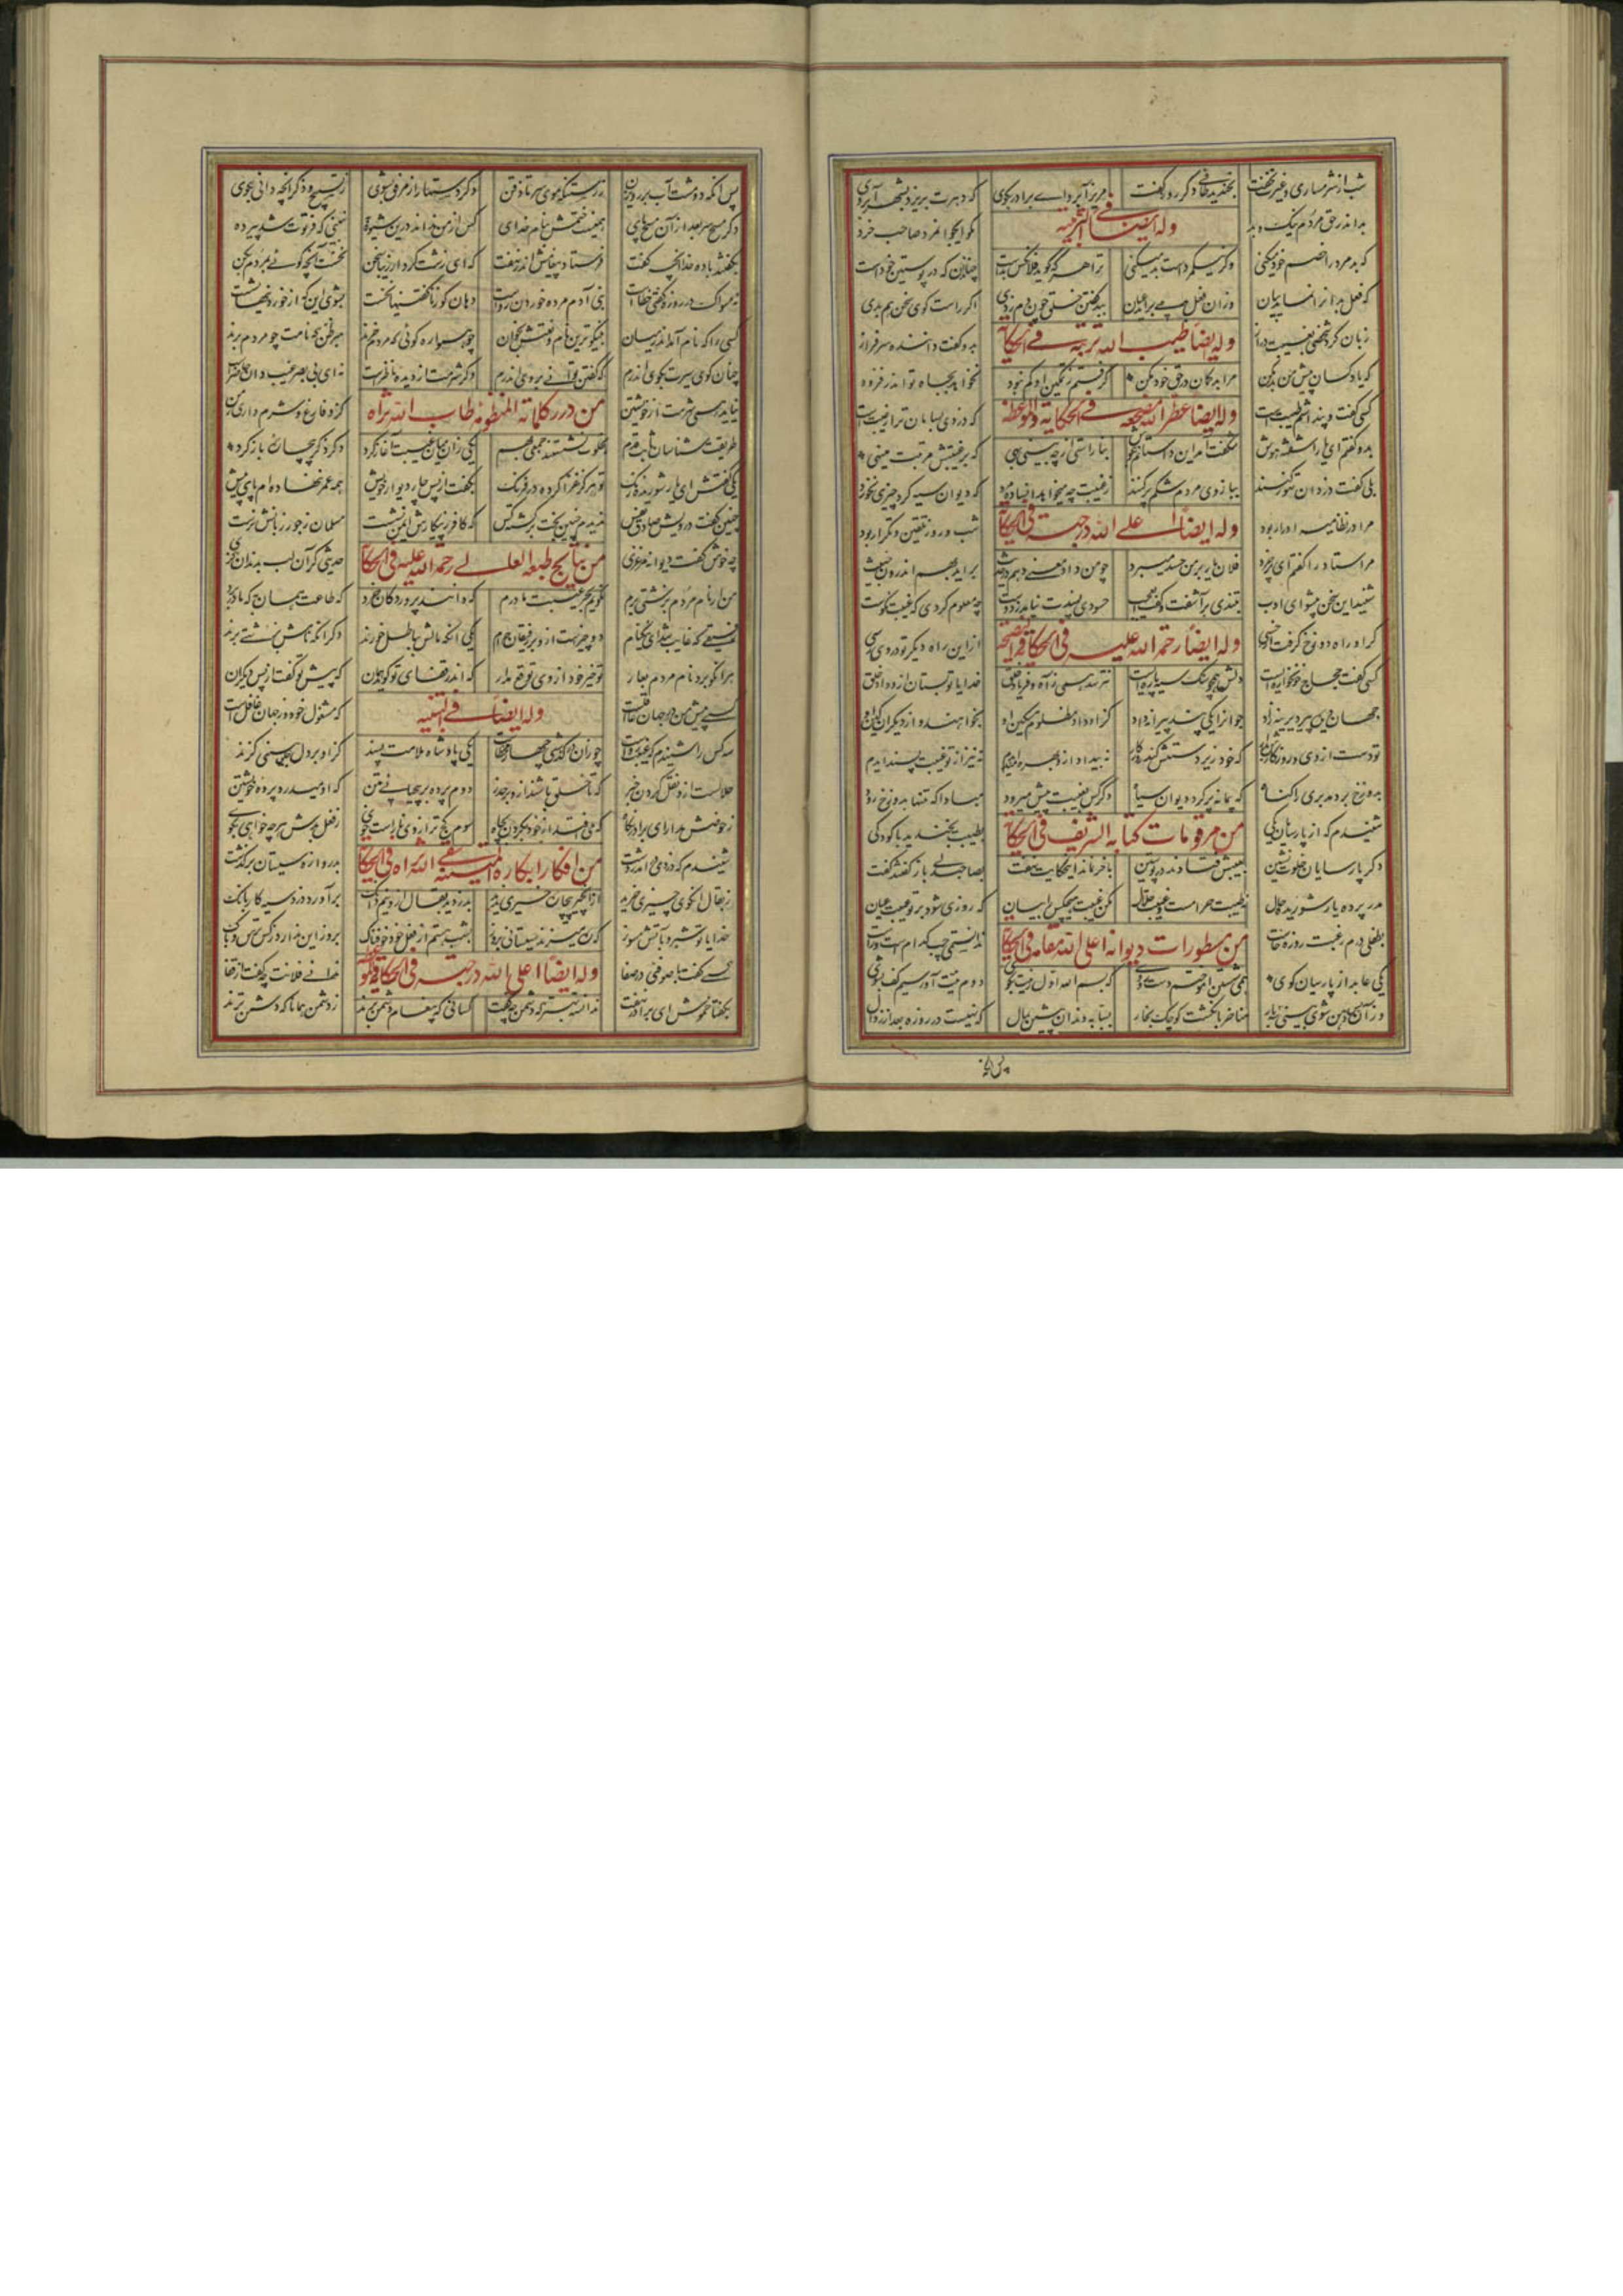 شب از شرمساری و فکرت نخفت بخندید طائی دگر روز و گفت مریز آبروای برادر بکوی که دهرت بریزد بشهر آبروی
وله ایضا فی التربیه
بد اندر حق مردم نیک و بد مگو ایجوانمرد صاحب خرد
که بد مرد را خصم خود میکنی وگر نیکمرد است بد میکنی ترا هر که گوید فلانکس بدست چنان دان که در پوستین خود است
که فعل بد انرا نماید بیان وزان فعل بد می براید عیان ببد گفتن خلق چون دم زدی اگر راست گوئی سخن هم بدی
وله ایضا طیب الله تربته فی الحکایة
زبان کرد شخصی بغیبت دراز بدو گفت داننده سرفراز
که یاد کسان پیش من بد مکن مرا بدگمان در حق خود مکن گرفتم ز تمکین او کم نبود نخواهد بجاه تو اندر فزود
وله ایضا عطر الله مضجعه فی الحکایة والموعظه
کسی گفت و پنداشتم طیبت است که دزدی بسامان تر از غیبت است
بدو گفتم ای یار آشفته هوش شگفت آمد این داستانم بگوش بناراستی در چه بینی بهی که بر غیبتش مرتبت مینهی
بلی گفت دزدان تهور کنند ببازوی مردی شکم پر کنند ز غیبت چه میخواهد آن ساده مرد که دیوان سیه کرد و چیزی نخورد
وله ایضا اعلی الله درجته فی الحکایة
مرا در نظامیه ادرار بود شب و روز تلقین و تکرار بود
مر استاد را گفتم ای پرخرد فلان یار بر من حسد میبرد چو من داد معنی دهم در حدیث براید بهم اندرون خبیث
شنید این سخن پیشوای ادب بتندی برآشفت و گفت ای عجب حسودی پسندت نیامد ز دوست چه معلوم کردی که غیبت نکوست
وله ایضاً رحمة الله علیه فی الحکایة والنصیحة
گر او راه دوزخ گرفت از خسی ازاین راه دیگر تو در وی رسی
کسی گفت حجاج خونخواره ایست دلش همچو سنگ سیه پاره ایست نترسد همی ز آه و فریاد خلق خدایا تو بستان ازو داد خلق
جهان دیدهٔ پیر دیرینه زاد جوانرا یکی پند پیرانه داد کزو داد مظلوم مسکین او بخواهند و از دیگران کین او
تو دست از وی و روزگارش بدار که خود زیر دستش کند روزگار نه بیداد ازو بهره مند آیدم نه نیز از تو غیبت پسند ایدم
بدوزخ برد مدبری را گناه که پیمانه پر کرد و دیوان سیاه دگر کس بغیبت پیش میرود مبادا که تنها بدوزخ رود
من مرقومات کتابه الشریف فی الحکایة
شنیدم که از پارسایان یکی بطیبت بخندید با کودکی
دگر پارسایان خلوت نشین بعیبش فتادند در پوستین باخر نماند این حکایت نهفت بصاحبدلی باز گفتند گفت
مدر پرده یار شوریده حال نه طیبت حرامست و غیبت حلال مکن غیبت هیچکس را بیان که روزی شود بر تو عیبت عیان
من مسطورات دیوانه اعلی الله مقامه فی الحکایة
بطفلی درم رغبت روزه خاست ندانستمی چپ کدام است و راست
یکی عابد از پارسیان کوی همی شستن آموختم دست و روی که بسم الله اول بسنت بگوی دوم نیت آور سیم کف بشوی
وز آن پس دهن شوی و بینی سه بار مناخر بانگشت کوچک بخار بسبابه دندان پیشین بمال که نهیست در روزه بعد از زوال
پس آنگه
پس آنگه دو مشت آب بر روی زن ز رستنگه موی سر تا ذقن دگر دستها را ز مرفق بشوی ز تسبیح و ذکر آنچه دانی بگوی
دگر مسح سر بعد از آن مسح پای همینست ختمش بنام خدای کس از من نداند درین شیوه به نبینی که فرتوت شد پیر ده
بگفتند با ده خدا آنچه گفت فرستاد پیغامش اندر نهفت که ای زشت کردار زیبا سخن نخست آنچه گوئی بمردم بکن
نه مسواک در روزه گفتی خطاست بنی آدم مرده خوردن رواست دهان گو ز ناگفتنیها نخست بشوی این که از خوردنیها بشست
کسی را که نام آمد اندر میان به نیکوترین نام و نعتش بخوان چو همواره گوئی که مردم خرند مبر ظن که نامت چو مردم برند
چنان گوی سیرت بکوی اندرم که گفتن توانی بروی اندرم وگر شرمت از دیدهٔ ناظرست نه ای بی بصر غیب دان حاضر است
من درر کلماته المنظومة طاب الله ثراه
نیاید همی شرمت از خویشتن کزو فارغ و شرم داری ز من
طریقت شناسان ثابت قدم بخلوت نشستند جمعی بهم یکی زان میان غیبت آغاز کرد در ذکر بیچارهٔ باز کرد
یکی گفتش ای یار شوریده رنگ تو هرگز غزا کردهٔ در فرنگ بگفت از پس چار دیوار خویش همه عمر ننهاده ام پای پیش
چنین گفت درویش صادق نفس ندیدم چنین بخت برگشته کس که کافر ز پیکارش ایمن نشست مسلمان ز جور زبانش نرست
من نتایج طبعه العالی رحمة الله علیه فی الحکایة
چه خوش گفت دیوانه مرغزی حدیثی کز آن لب بدندان گزی
من ار نام مردم بزشتی برم نگویم بجز غیبت مادرم که دانند پروردگان خرد که طاعت همان به که مادر برد
رفیقی که غایب شد ای نیکنام دو چیزست ازو بر رفیقان حرام یکی آنکه مالش بباطل خورند دگر آنکه نامش بزشتی برند
هر آنکو برد نام مردم بعار تو خیر خود از وی توقع مدار که اندر قفای تو گوید همان که پیش تو گفت از پس دیگران
وله ایضا فی التنبیه
کسی پیش من در جهان عاقلست که مشغول خود وز جهان غافل است
سه کس را شنیدم که غیبت رواست چو زان درگذشتی چهارم خطاست یکی پادشاه ملامت پسند کزاو بر دل خلق بینی گزند
حلالست ازو نقل کردن خبر که تا خلق باشند ازو برحذر دوم پرده بر بیحیائی متن که او میدرد پردهٔ خویشتن
ز حوضش مدار ای برادر نگاه که می افتد از خود بگردن بچاه سوم کج ترازوی ناراست خوی ز فعل بدش هرچه خواهی بگوی
شنیدم که دزدی درآمد ز دشت بدروازه سیستان برگذشت
ز بقال کوی چیزی خرید بدزدید بقال ازو نیم دانگ برآورد دزد سیه کار بانگ
خدایا تو شبرو بآتش مسوز که ره میزند سیستانی بروز
وله ایضا اعلی الله درجته فی الحکایة
کسی گفت با صوفئی در صفا ندانی فلانت چه گفت از قفا
بگفتا خموش ای برادر بخفت ندانسته بهتر که دشمن چه گفت کسانی که پیغام دشمن برند ز دشمن همانا که دشمن ترند